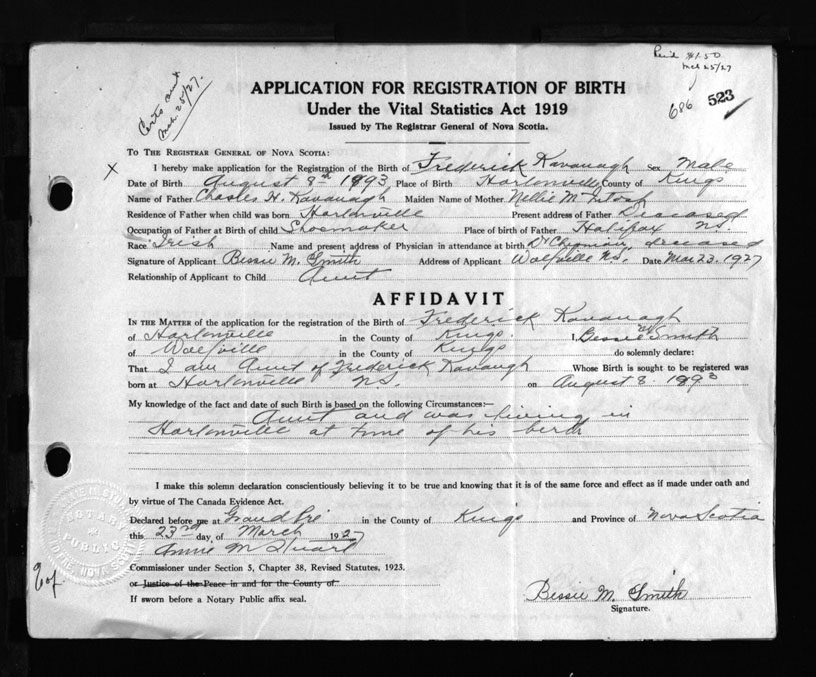 Pd $1.50
Mch 25/27
Certs out
Mch 25/27.
686 523
APPLICATION FOR REGISTRATION OF BIRTH
Under the Vital Statistics Act 1919
Issued by The Registrar General of Nova Scotia.
TO THE REGISTRAR GENERAL OF NOVA SCOTIA:
X I hereby make application for the Registration of the Birth of Frederick Kavanagh Sex Male
Date of Birth August 8th 1893 Place of Birth Harlonville County of Kings
Name of Father Charles H. Kavanagh Maiden Name of Mother Nellie McIntosh
Residence of Father when child was born Harlonville Present address of Father Deceased
Occupation of Father at Birth of child Shoemaker Place of birth of Father Halifax NS.
Race Irish Name and present address of Physician in attendance at birth Dr Chipman, deceased
Signature of Applicant Bessie M. Smith Address of Applicant Wolfville N.S. Date Mar 23. 1927
Relationship of Applicant to Child Aunt
AFFIDAVIT
IN THE MATTER of the application for the registration of the Birth of Frederick Kavanagh
of Harlonville in the County of Kings. I, Bessie M Smith
of Wolfville in the County of Kings do solemnly declare:
That I am Aunt of Frederick Kavaugh Whose Birth is sought to be registered was
born at Harlonville NS. on August 8. 1893
My knowledge of the fact and date of such Birth is based on the following Circumstances:—
Aunt and was living in
Harlonville at time of his birth
I make this solemn declaration conscientiously believing it to be true and knowing that it is of the same force and effect as if made under oath and
by virtue of The Canada Evidence Act.
Declared before me at Grand Pré in the County of Kings and Province of Nova Scotia
this 23rd day of March 1927
Annie M Stuart
Commissioner under Section 5, Chapter 38, Revised Statutes, 1923.
or Justice of the Peace in and for the County of
If sworn before a Notary Public affix seal.
Bessie M. Smith
Signature.
ANNIE M. STUART
NOTARY PUBLIC
NOVA SCOTIA